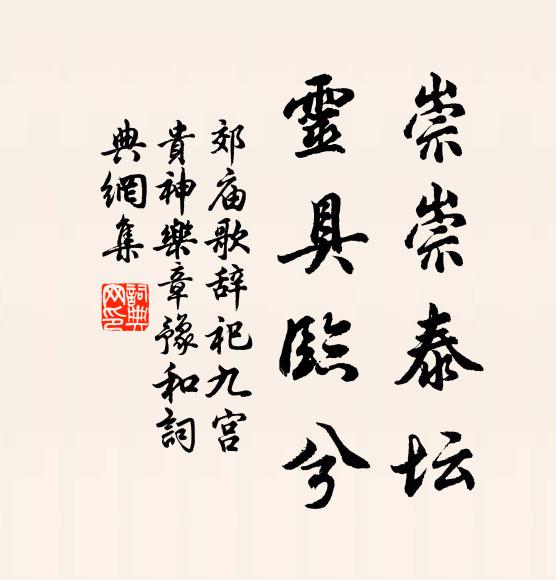 崇崇泰坛
靈具臨兮
郊庙歌辞祀九宫
貴神樂章豫和詞
典網集
詞典
网印